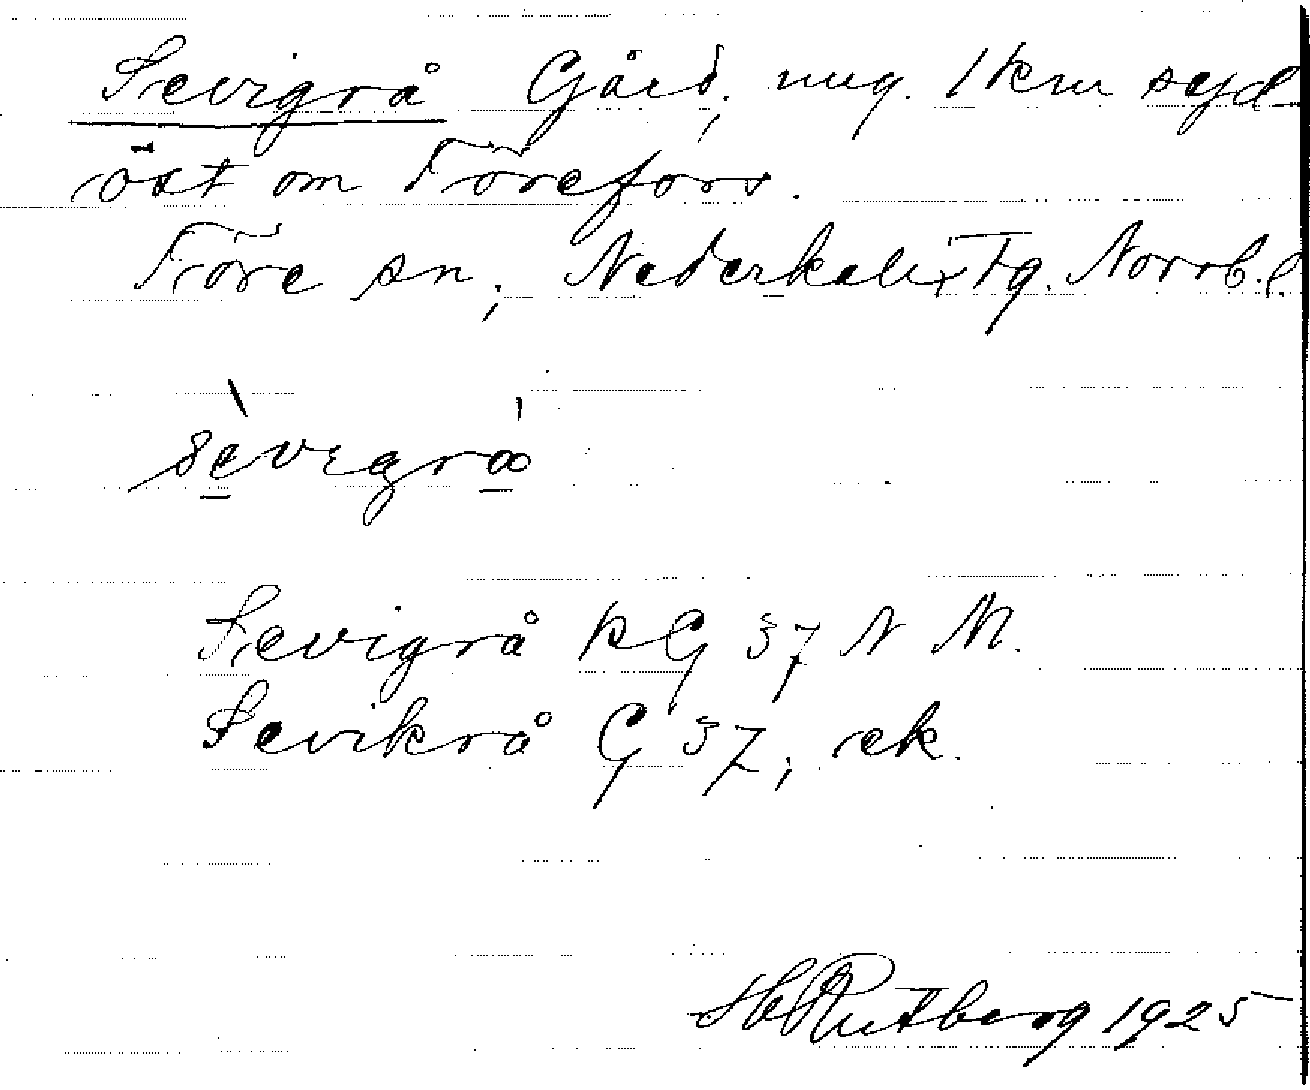 Sevigrå Gård, ung. 1 km syd
öst om Törefors.
Töre sn, Nederkalix Tg. Norrb. l.
sèvigrå
Sevigrå kG 37 N M.
Sevikrå G 37, ek.
H Rutberg 1925